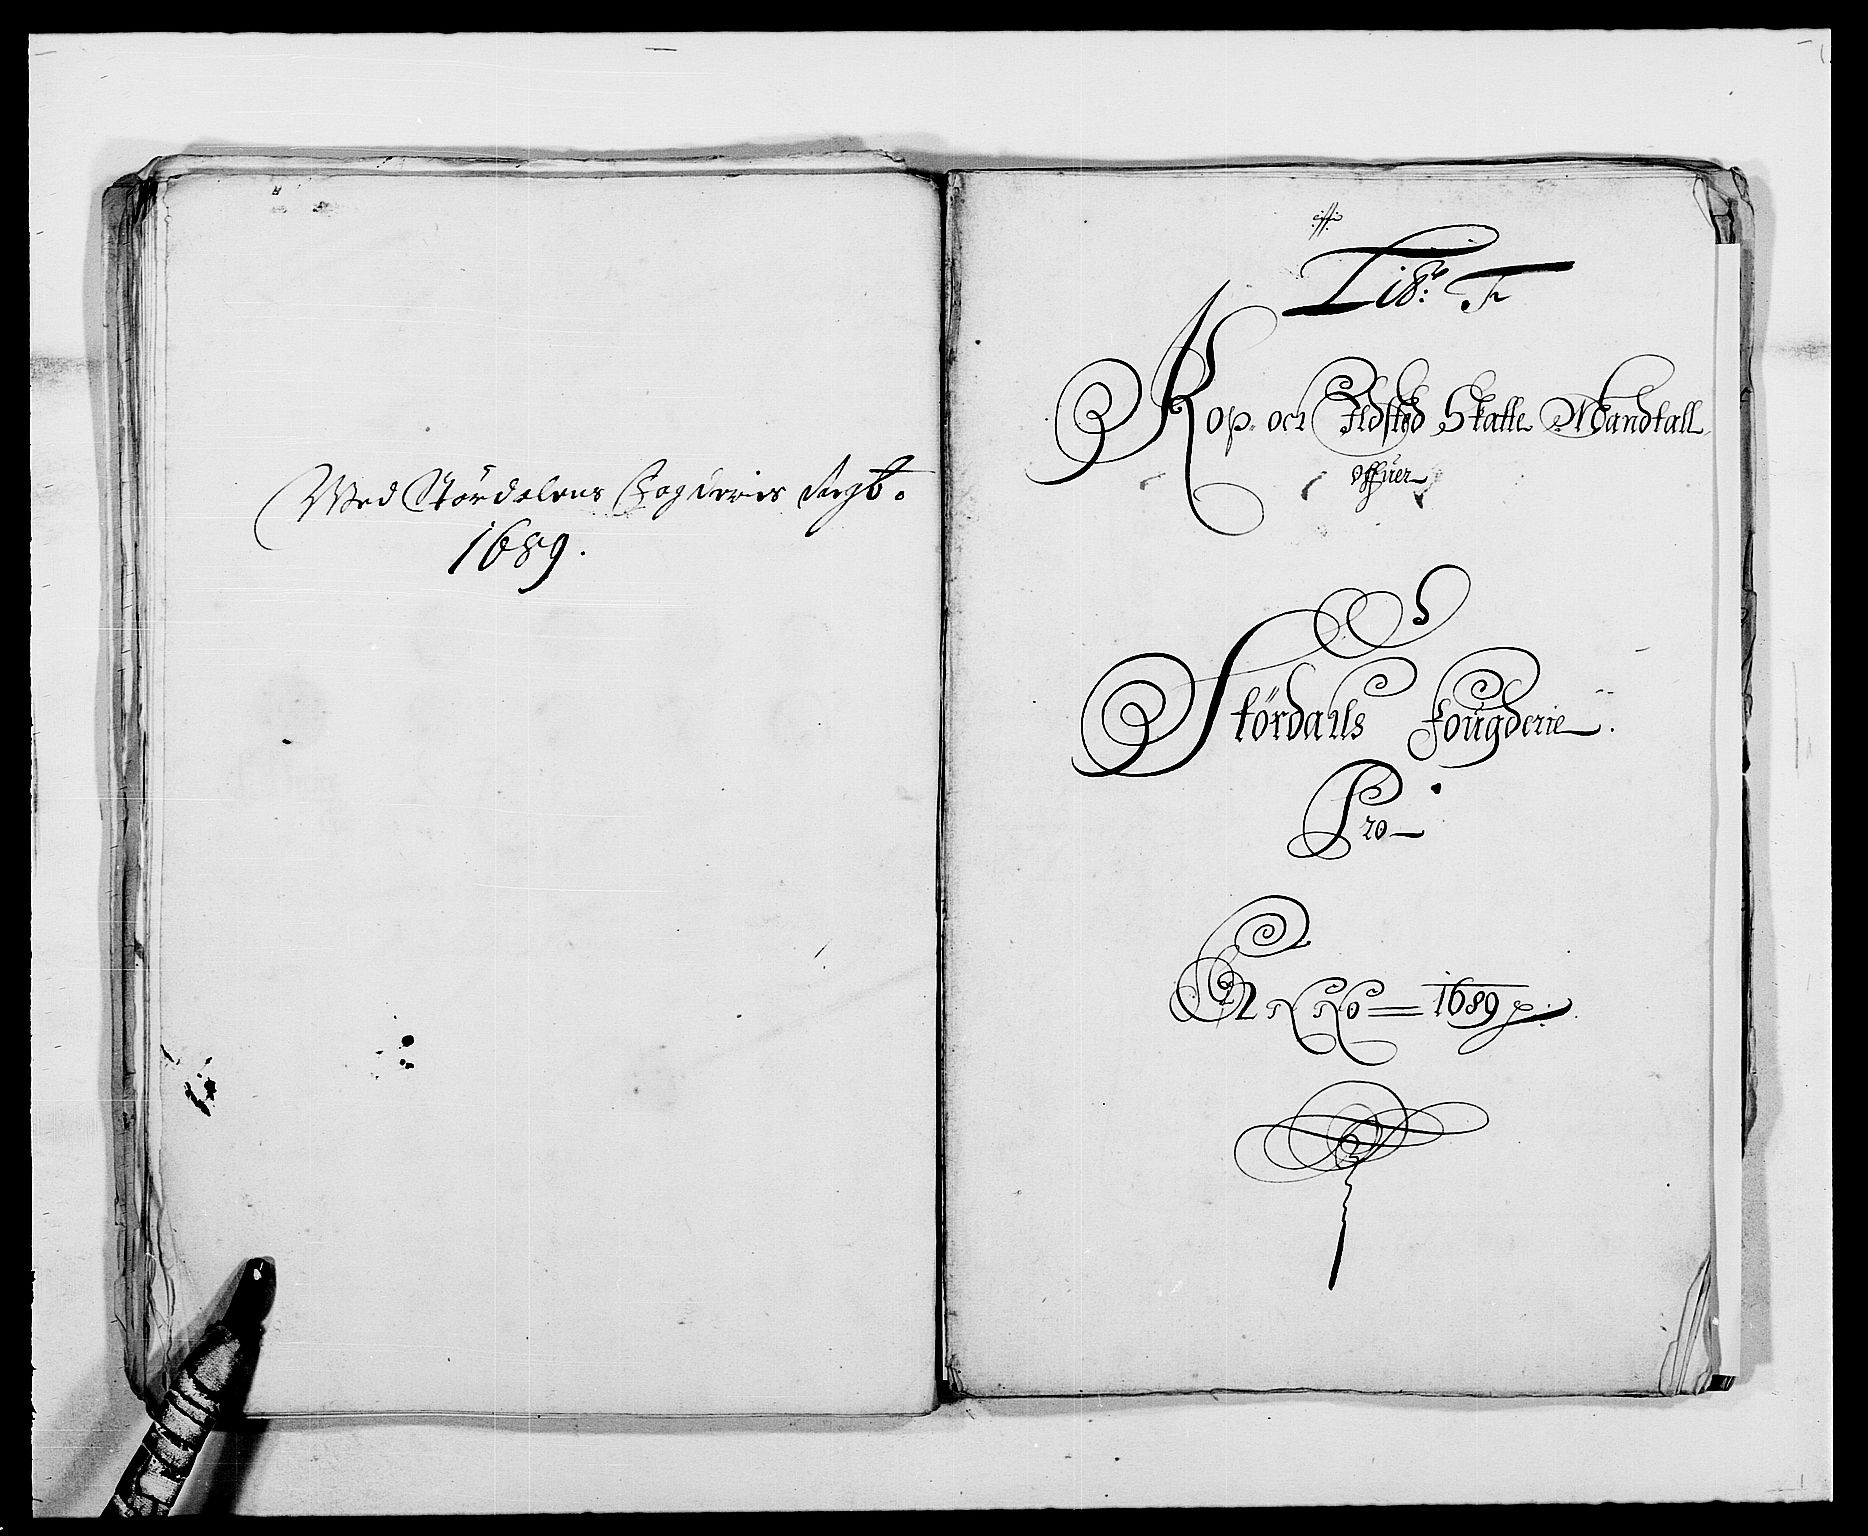 Med Stördalens Fogderies Regb.
1689.
Lit: F
Kop. och Ildsted Skatte Mandtall
offuer
Stördalls Fougderie.
Pro
ANNO = 1689 p: